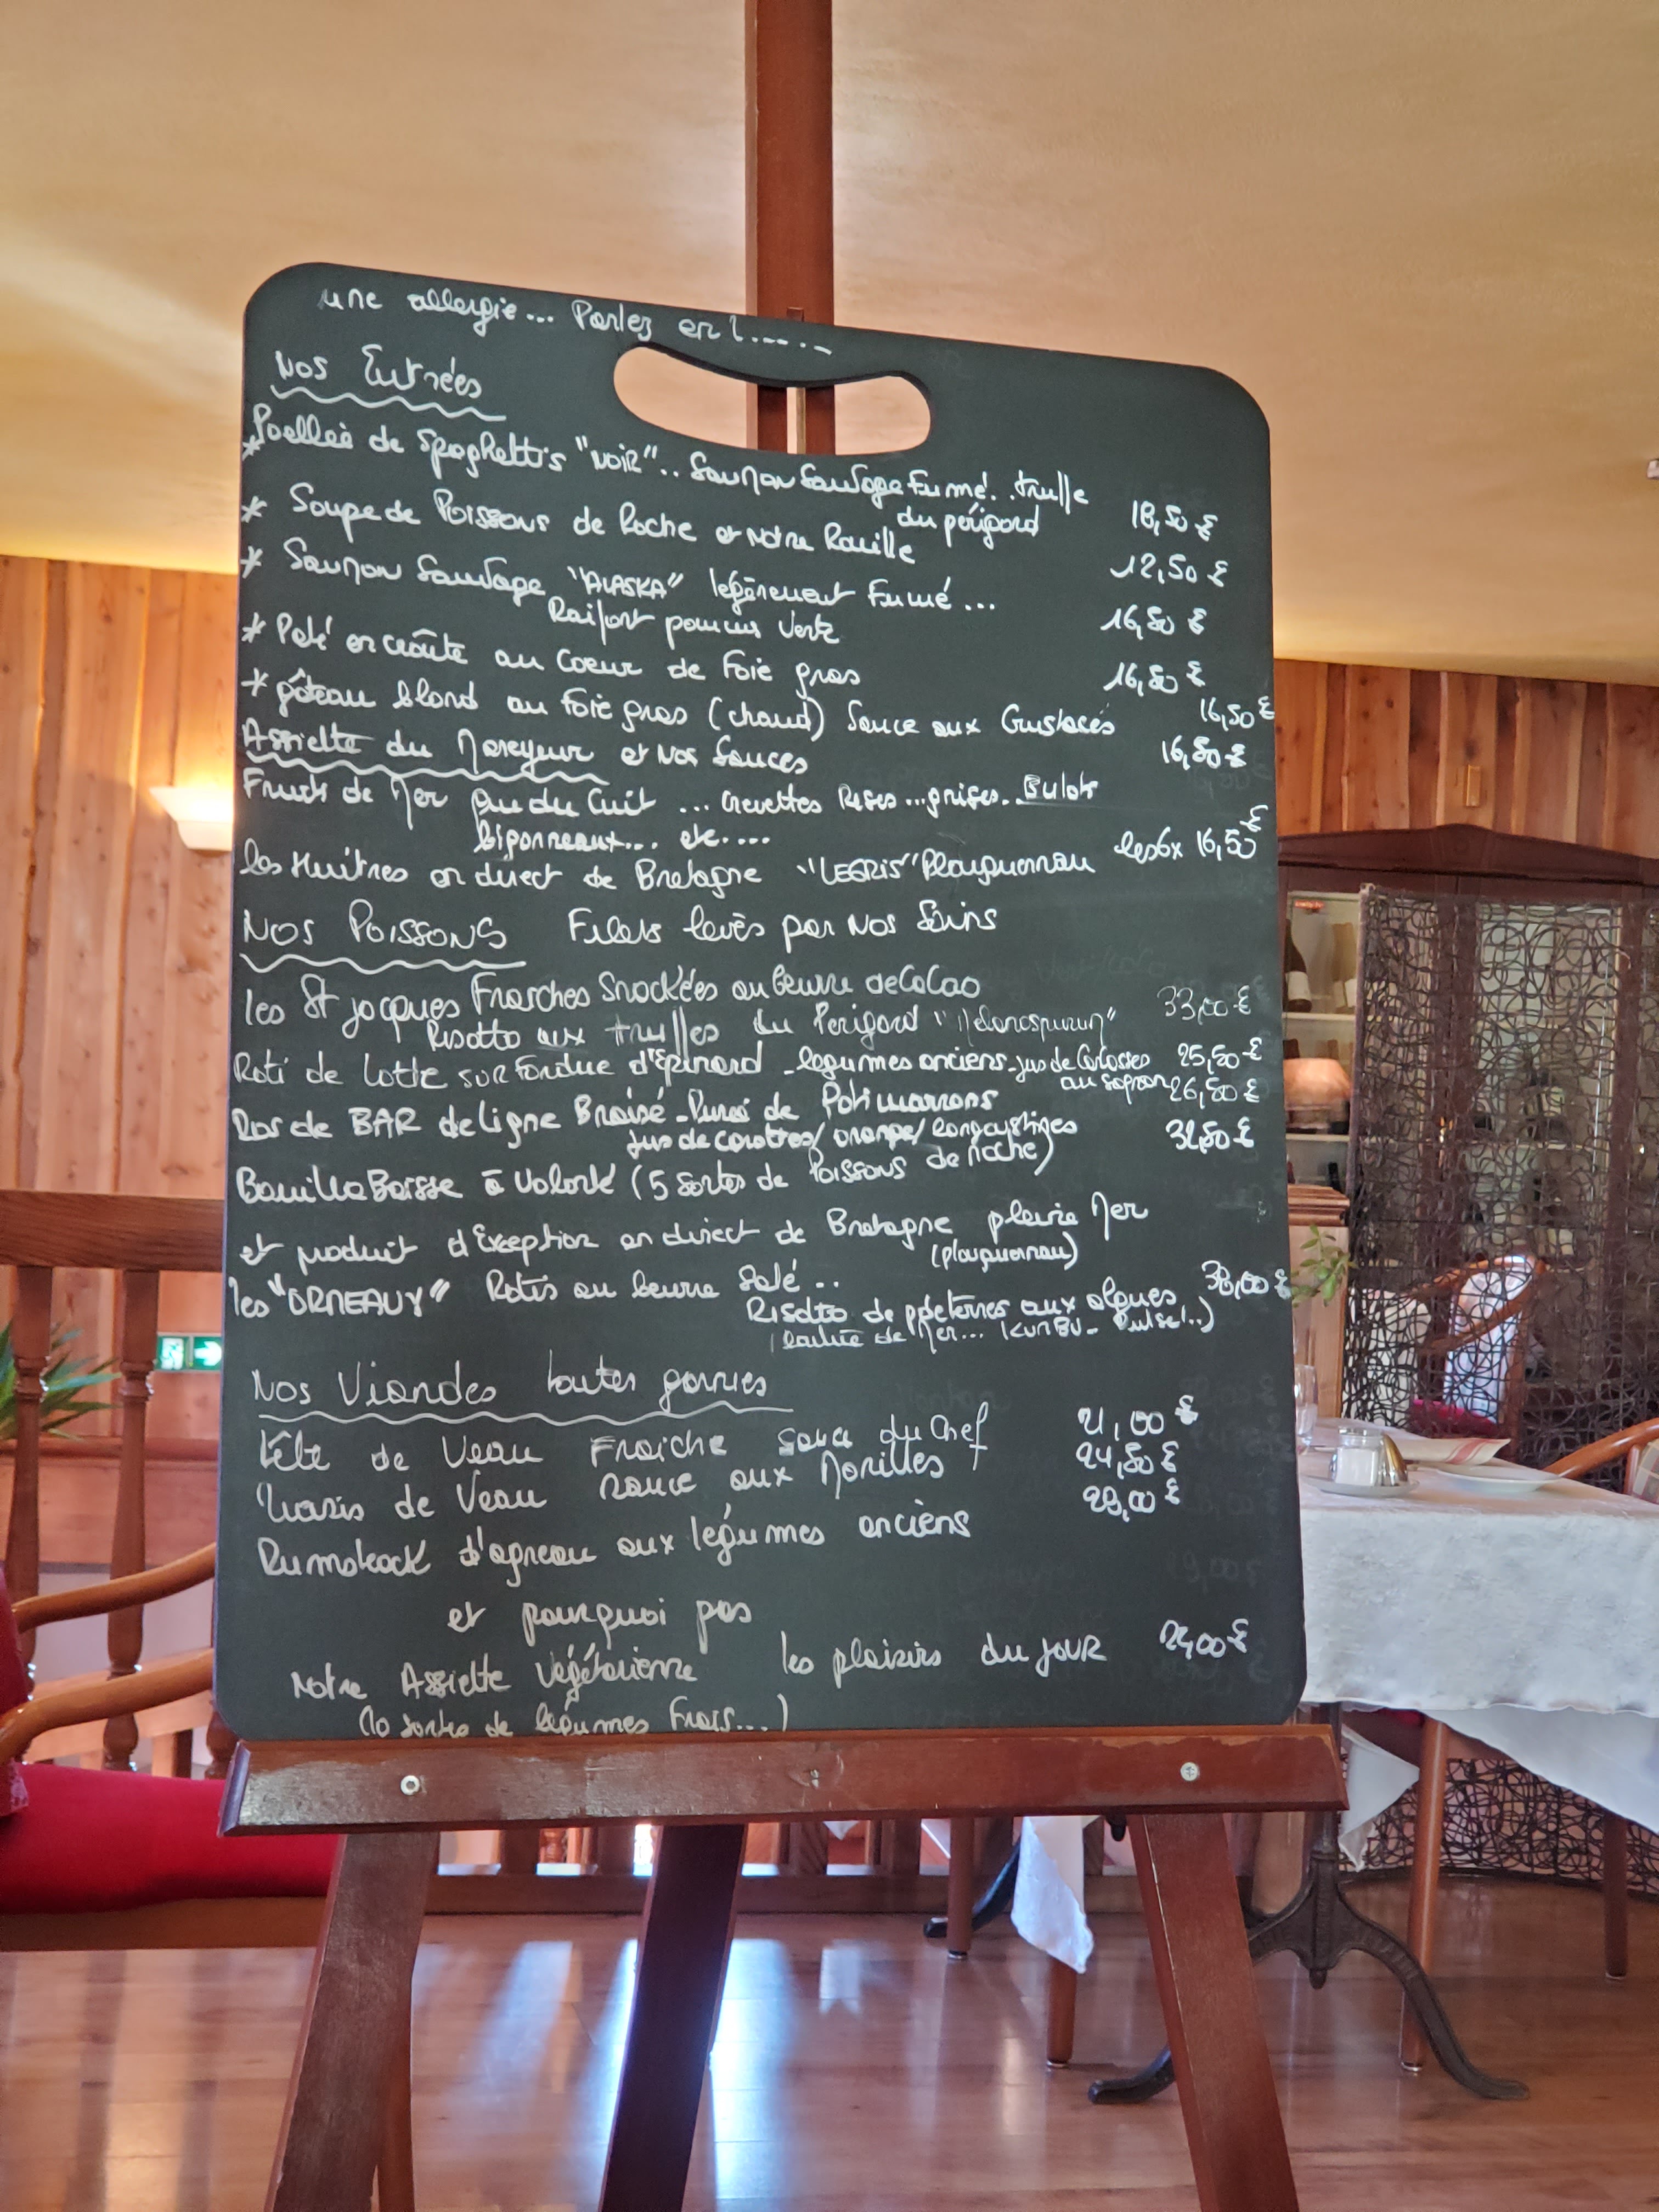 une allergie... Parlez en !.....
Nos Entrées
* Poellée de Spaghettis "NOIR".. Saumon Sauvage Fumé. . truffe
du périgord 18,50 €
* Soupe de Poissons de Roche et Notre Rouille 12,50 €
* Saumon Sauvage "ALASKA" légèrement Fumé ...
Raifort pommes verte 16,50 €
* Paté en croûte au Coeur de Foie gras 16,50 €
* gâteau blond au foie gras (chaud) Sauce aux Crustacés 16,50 €
Assiette du Mareyeur et Nos Sauces 16,50 €
Fruits de Mer ou du Cuit ... crevettes Roses ... grises.. Bulots
bigorneaux... etc....
les Huîtres en direct de Bretagne "LEGRIS" Plouguerneau les 6x 16,50 €
NOS POISSONS Filets levés par Nos Soins
les St jacques Fraiches Snackées au beurre de Cacao 33,00 €
Risotto aux truffes du Perigord "Melanosporum"
Roti de lotte sur Fondue d'Epinard - legumes anciens - jus de Carcasses 25,50 €
au safran 26,50 €
Dos de BAR de ligne Braisé - Purée de Potimarrons
jus de carottes/orange/langoustines 32,50 €
BouillaBaisse à Volonté (5 sortes de Poissons de roche)
et produit d'Exception en direct de Bretagne pleine Mer
(plouguerneau)
les "ORMEAUX" Rotis au beurre Salé .. 38,00 €
Risotto de aux algues
de Mer... KOMBU -
Nos Viandes toutes garnies
Tête de Veau FRAICHE sauce du Chef 21,00 €
de Veau sauce aux Morilles 24,50 €
Rumsteack d'agneau aux légumes anciens 29,00 €
et pourquoi pas
Notre Assiette Végétarienne les plaisirs du JOUR 24,00 €
(10 sortes de légumes Frais...)